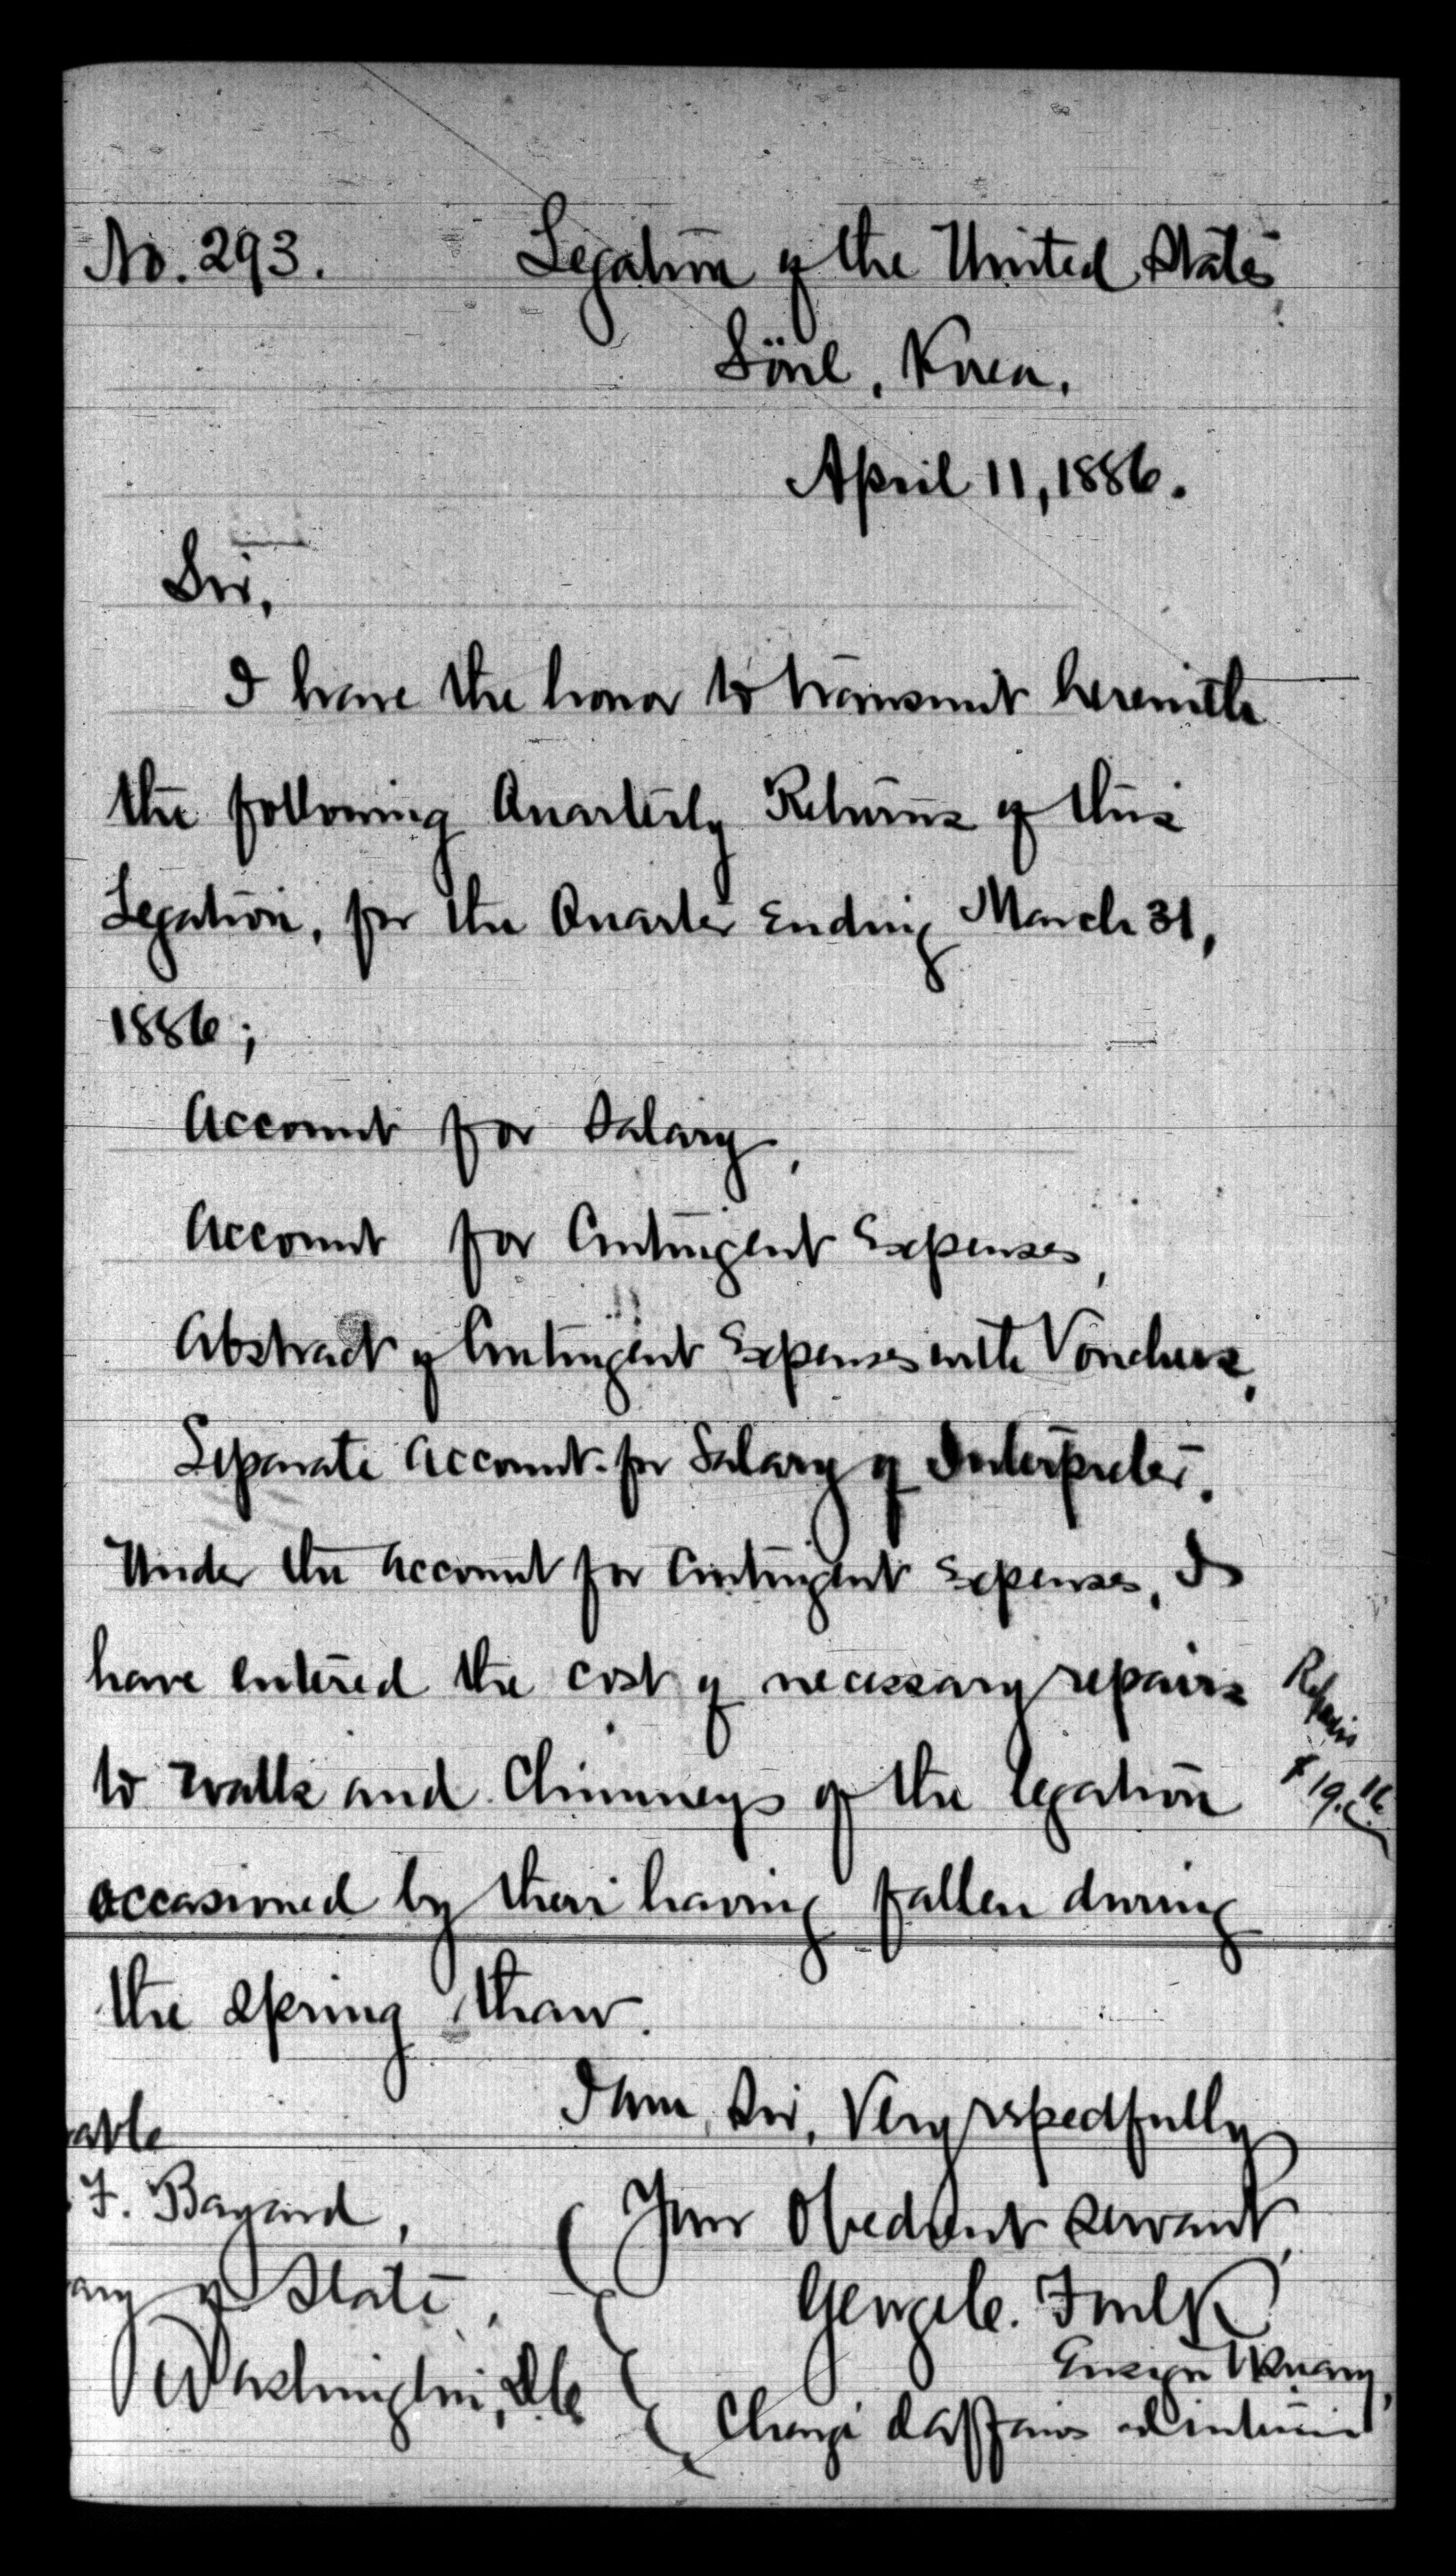 No. 293.
Legation of the United States
Söul, Korea.
April 11, 1886.
Sir,
I have the honor to transmit herewith
the following Quarterly Returns of this
Legation, for the Quarter Ending March 31,
1886;
Account for Salary,
Account for Contingent Expenses,
Abstract of Contingent Expenses with Vouchers,
Separate Account for Salary of Interpreter.
Under the Account for Contingent Expenses, I
have entered the cost of necessary repairs
Repairs
to walls and Chimneys of the legation
$19.16
occasioned by their having fallen during
the spring thaw.
I am, Sir, Very respectfully
Your Obedient servant,
George C. Foulk
Ensign U.S. Navy,
Chargé d'affaires ad interim
able
F. Bayard,
ary of State,
Washington, D.C.